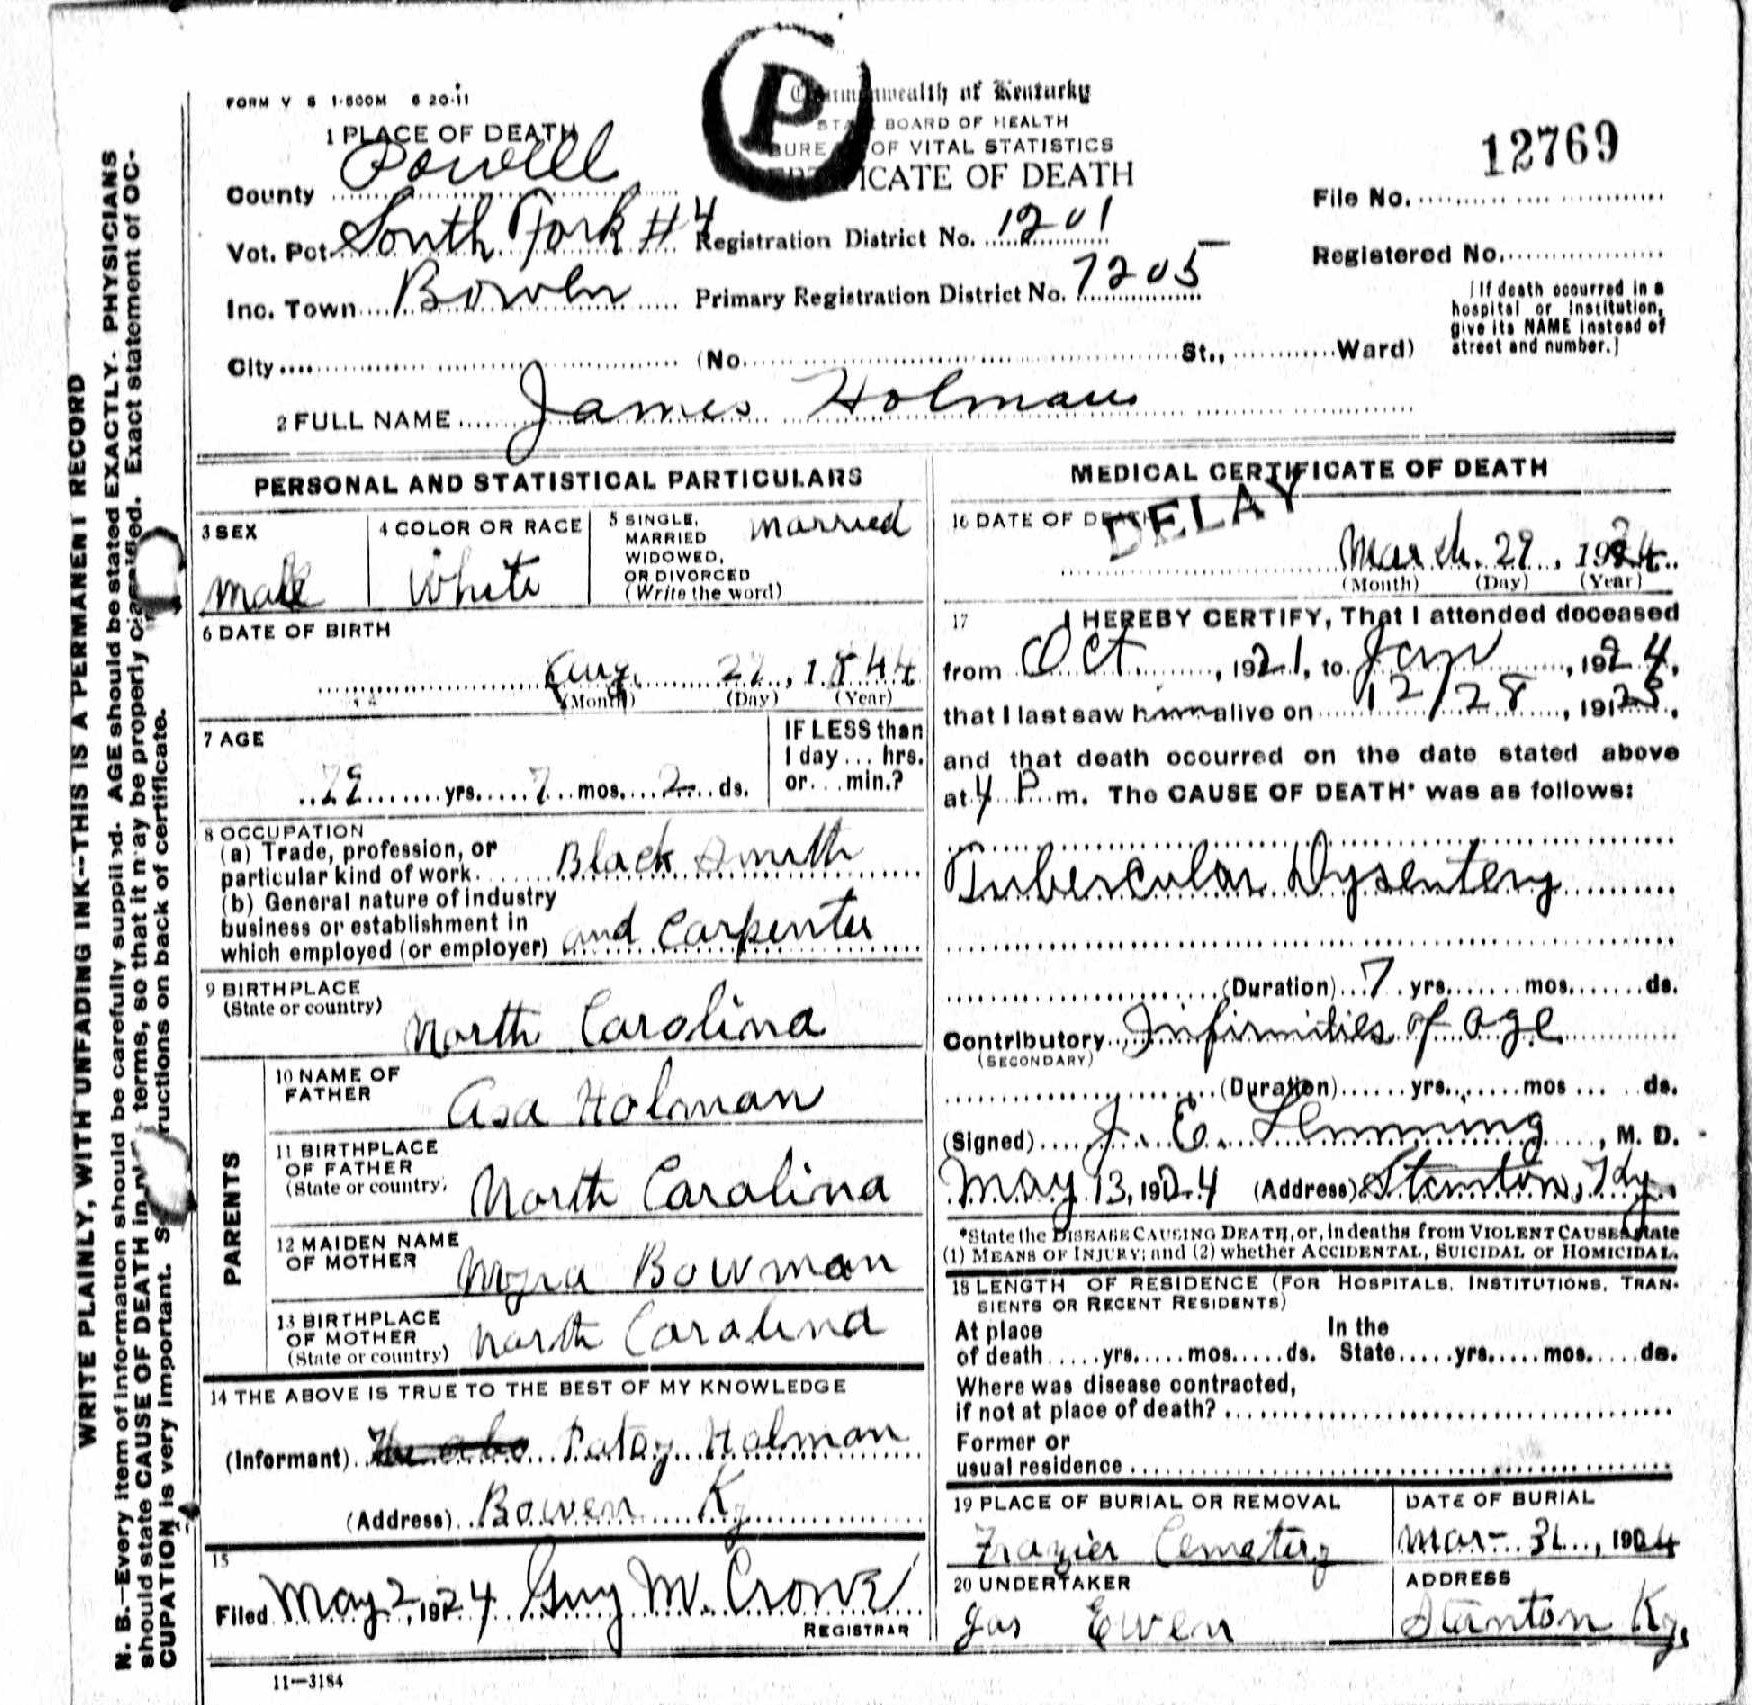 FORM V S 1-500M 6 20-11
Commonwealth of Kentucky
STATE BOARD OF HEALTH
BUREAU OF VITAL STATISTICS
CERTIFICATE OF DEATH
P
12769
1 PLACE OF DEATH
County Powell
File No.
Vot. Pct. South Fork #4 Registration District No. 1201
Registered No.
Inc. Town Bowen Primary Registration District No. 7205
City (No. St., Ward)
[If death occurred in a
hospital or institution,
give its NAME instead of
street and number.]
2 FULL NAME James Holman
PERSONAL AND STATISTICAL PARTICULARS
3 SEX
male
4 COLOR OR RACE
White
5 SINGLE,
MARRIED
WIDOWED,
OR DIVORCED
(Write the word)
married
6 DATE OF BIRTH
Aug. 27, 1844
(Month) (Day) (Year)
7 AGE
79 yrs. 7 mos. 2 ds.
IF LESS than
1 day... hrs.
or... min.?
8 OCCUPATION
(a) Trade, profession, or
particular kind of work. Black Smith
(b) General nature of industry
business or establishment in
which employed (or employer) and Carpenter
9 BIRTHPLACE
(State or country)
North Carolina
PARENTS
10 NAME OF
FATHER
Asa Holman
11 BIRTHPLACE
OF FATHER
(State or country)
North Carolina
12 MAIDEN NAME
OF MOTHER
Myra Bowman
13 BIRTHPLACE
OF MOTHER
(State or country)
North Carolina
14 THE ABOVE IS TRUE TO THE BEST OF MY KNOWLEDGE
(Informant) The abo Patsy Holman
(Address) Bowen Ky
15
Filed May 2, 1924 Guy M. Crowe
REGISTRAR
11—3184
MEDICAL CERTIFICATE OF DEATH
16 DATE OF DEATH
DELAY
March 29, 1924
(Month) (Day) (Year)
17 I HEREBY CERTIFY, That I attended deceased
from Oct., 1921, to Jan, 1924,
that I last saw him alive on 12/28, 1923,
and that death occurred on the date stated above
at 4 P. m. The CAUSE OF DEATH* was as follows:
Tubercular Dysentery
(Duration) 7 yrs. mos. ds.
Contributory Infirmities of age
(SECONDARY)
(Duration) yrs. mos ds.
(Signed) J. E. Lemming, M. D.
May 13, 1924 (Address) Stanton, Ky.
*State the DISEASE CAUSING DEATH, or, in deaths from VIOLENT CAUSES state
(1) MEANS OF INJURY; and (2) whether ACCIDENTAL, SUICIDAL or HOMICIDAL.
18 LENGTH OF RESIDENCE (FOR HOSPITALS, INSTITUTIONS, TRAN-
SIENTS OR RECENT RESIDENTS)
At place In the
of death yrs. mos. ds. State yrs. mos. ds.
Where was disease contracted,
if not at place of death?
Former or
usual residence
19 PLACE OF BURIAL OR REMOVAL
Frazier Cemetery
DATE OF BURIAL
Mar- 31, 1924
20 UNDERTAKER
Jas Ewen
ADDRESS
Stanton Ky.
WRITE PLAINLY, WITH UNFADING INK--THIS IS A PERMANENT RECORD
N. B.—Every item of information should be carefully supplied. AGE should be stated EXACTLY. PHYSICIANS
should state CAUSE OF DEATH in terms, so that it may be properly classified. Exact statement of OC-
CUPATION is very important. See instructions on back of certificate.